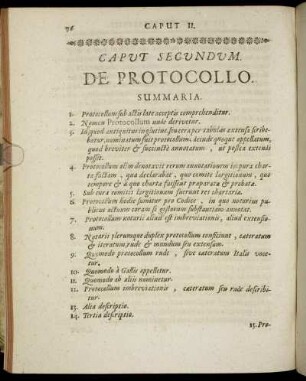 76 CAPUT II.
CAPUT SECUNDUM.
DE PROTOCOLLO.
SUMMARIA.
1. Protocollum sub actis late acceptis comprehenditur.
2. Nomen Protocollum unde derivetur.
3. Id, quod antiquitus in
betur, nominatum fuit protocollum, deinde quoque appellatum,
quod breviter & succincte annotatum, ut postea extendi
possit.
4. Protocollum olim denotavit rerum annotationem in pura char-
ta factam, quæ declarabat, quo comite largitionum, quo
tempore & à quo charta fuisset præparata & probata.
5. Sub cura comitis largitionum fuerunt res chartaria.
6. Protocollum hodie sumitur pro Codice, in quo notarius pu-
blicus actuum coram se gestorum substantiam annotat.
7. Protocollum notarii aliud est imbreviationis, aliud extensio-
num.
8. Notarii plerumque duplex protocollum conficiunt, ceteratum
& iteratum, rude & mundum seu extensum.
9. Quomodo protocollum rude, sive ceteratum Itali voce-
tur.
10. Quomodo à Gallis appelletur.
11. Quomodo ab aliis nominetur.
12. Protocollum imbreviationis, ceteratum seu rude describi-
tur.
13. Alia descriptio.
14. Tertia descriptio.
15. Pro-